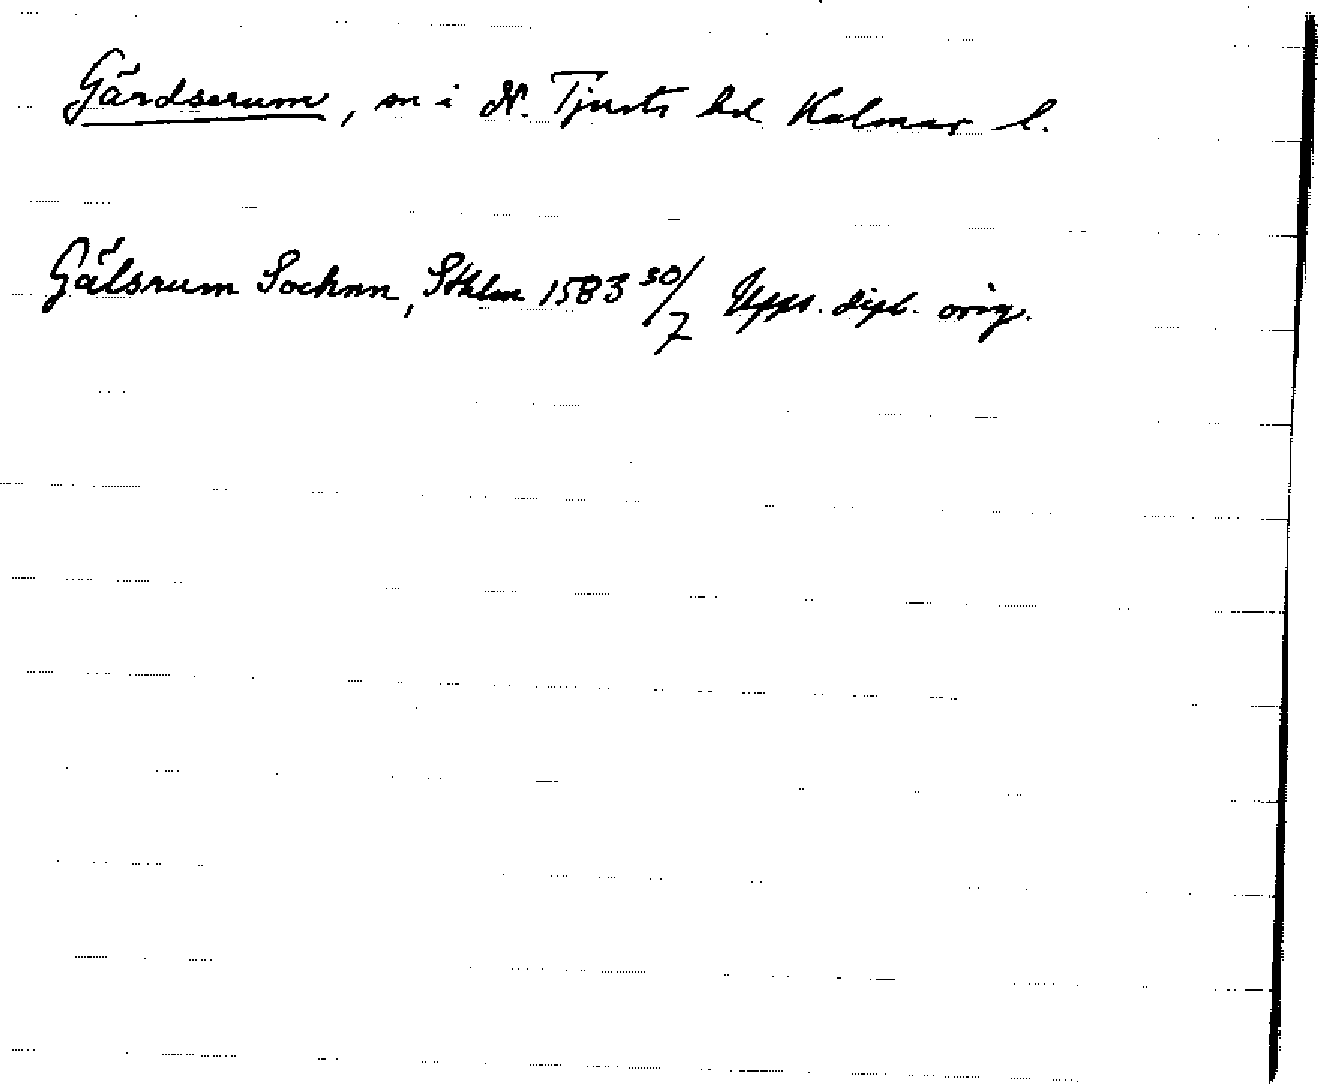 Gärdserum, sn i N. Tjusts hd Kalmar l.
Gälsrum Sochnn, Sthlm 1583 30/7 Upps. dipl. orig.